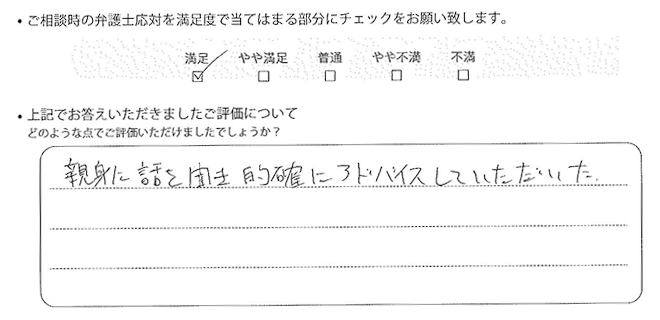 ・ご相談時の弁護士応対を満足度で当てはまる部分にチェックをお願い致します。
満足 やや満足 普通 やや不満 不満
☑ □ □ □ □
・上記でお答えいただきましたご評価について
どのような点でご評価いただけましたでしょうか？
親身に話を聞き 的確にアドバイスしていただいた.